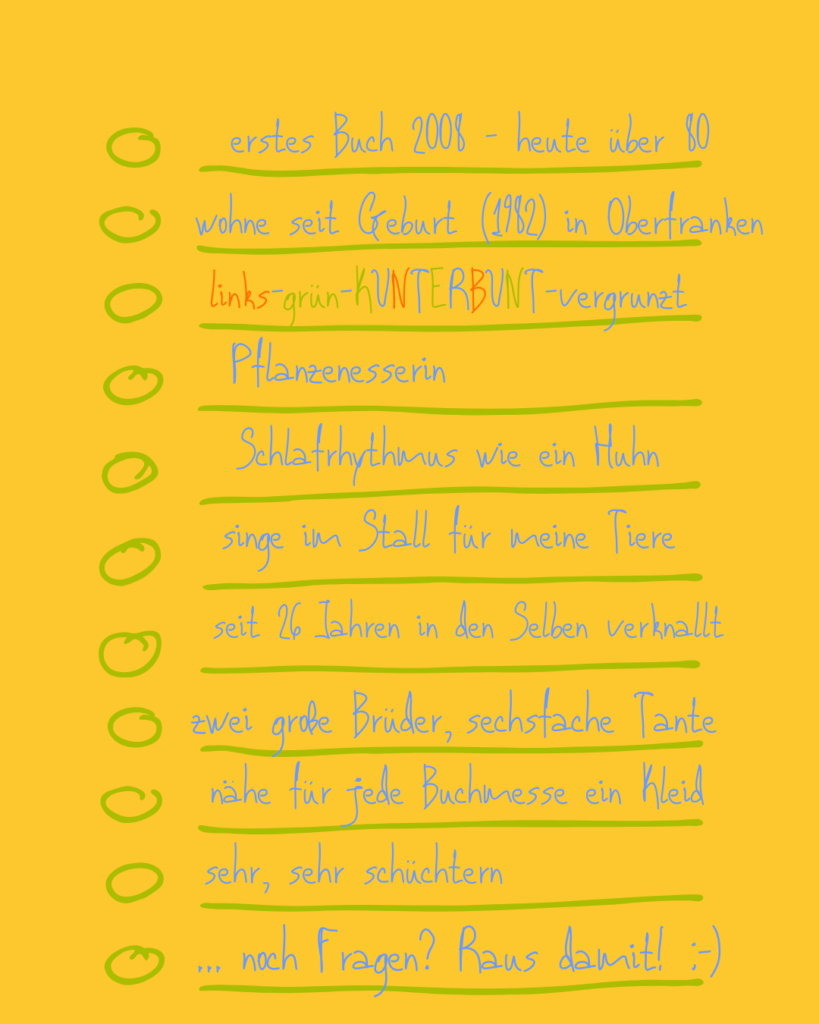 erstes Buch 2008 - heute über 80
wohne seit Geburt (1982) in Oberfranken
links-grün-KUNTERBUNT-vergrunzt
Pflanzenesserin
Schlafrhythmus wie ein Huhn
singe im Stall für meine Tiere
seit 26 Jahren in den Selben verknallt
zwei große Brüder, sechsfache Tante
nähe für jede Buchmesse ein Kleid
sehr, sehr schüchtern
... noch Fragen? Raus damit! :-)